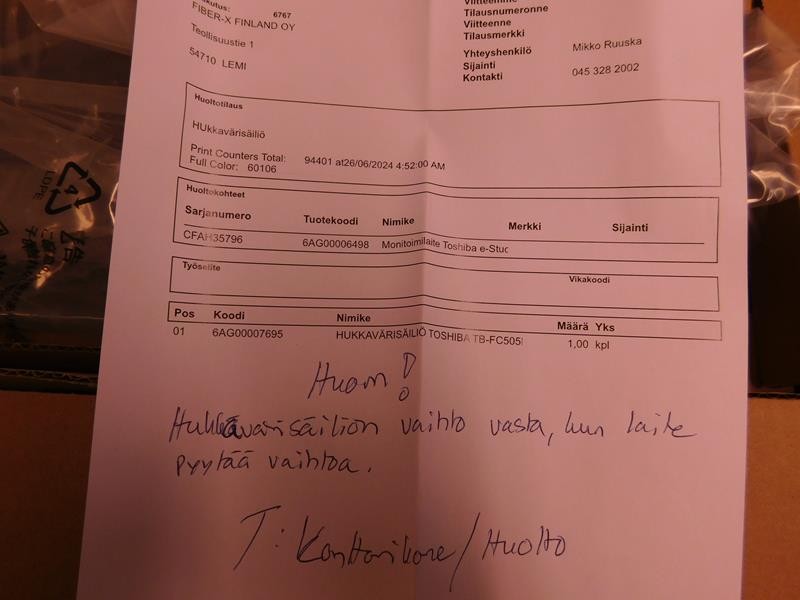 kutus:
6767
FIBER-X FINLAND OY
Teollisuustie 1
54710 LEMI
Viitteemme
Tilausnumeronne
Viitteenne
Tilausmerkki
Yhteyshenkilö Mikko Ruuska
Sijainti
Kontakti 045 328 2002
Huoltotilaus
HUkkavärisäiliö
Print Counters Total: 94401 at26/06/2024 4:52:00 AM
Full Color: 60106
Huoltokohteet
Sarjanumero Tuotekoodi Nimike Merkki Sijainti
CFAH35796 6AG00006498 Monitoimilaite Toshiba e-Stuc
Työselite Vikakoodi
Pos Koodi Nimike Määrä Yks
01 6AG00007695 HUKKAVÄRISÄILIÖ TOSHIBA TB-FC505 1,00 kpl
Huom!
Hukkavärisäiliön vaihto vasta, kun laite
pyytää vaihtoa.
T: Konttorikone/Huolto
LDPE
4